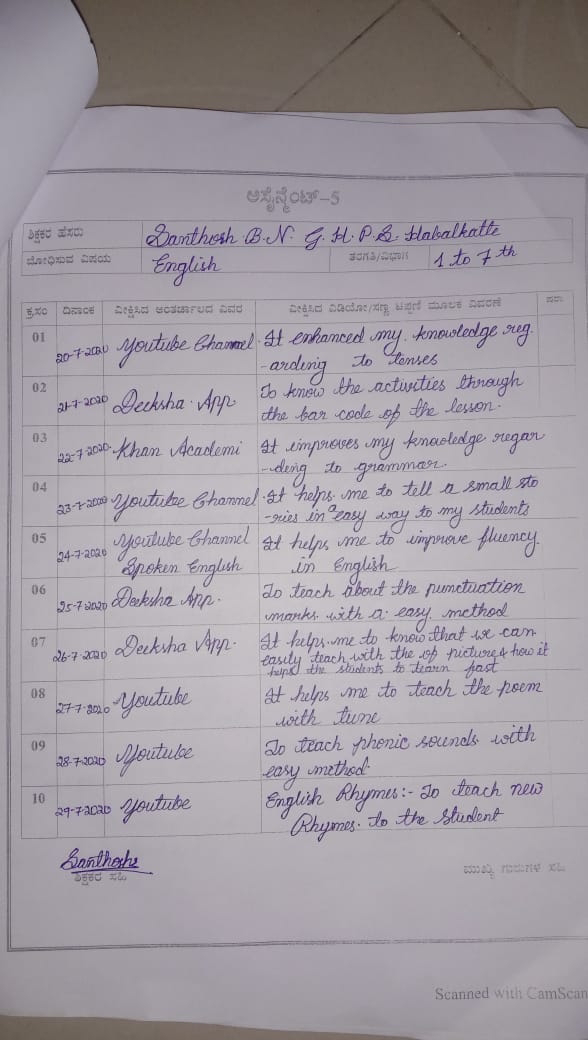 ಅಸೈನ್ಮೆಂಟ್-5
ಶಿಕ್ಷಕರ ಹೆಸರು Santhosh B.N. G.H.P.S. Habalkatte
ಬೋಧಿಸುವ ವಿಷಯ English ತರಗತಿ/ವಿಭಾಗ 1 to 7th
ಕ್ರ.ಸಂ ದಿನಾಂಕ ವೀಕ್ಷಿಸಿದ ಅಂತರ್ಜಾಲದ ವಿವರ ವೀಕ್ಷಿಸಿದ ವಿಡಿಯೋ/ಸಣ್ಣ ಟಿಪ್ಪಣಿ ಮೂಲಕ ವಿವರಣೆ ಷರಾ
01 20-7-2020 Youtube Channel. It enhanced my knowledge reg.
-arding to tenses
02 21-7-2020 Deeksha App. To know the activities through
the bar code of the lesson.
03 22-7-2020. Khan Academi It improves my knowledge regar
-ding to grammar.
04 23-7-2020 Youtube Channel. It helps me to tell a small sto
-ries in a easy way to my students
05 24-7-2020 Youtube Channel It helps me to improve fluency.
Spoken English in English
06 25-7-2020 Deeksha App. To teach about the punctuation
marks with a easy method
07 26-7-2020 Deeksha App. It helps me to know that we can
easily teach with the of picture & how it
helps the students to learn fast
08 27-7-2020 Youtube It helps me to teach the poem
with tune
09 28-7-2020 Youtube To teach phonic sounds with
easy method
10 29-7-2020 Youtube English Rhymes:- To teach new
Rhymes. to the Student
Santhosh
ಶಿಕ್ಷಕರ ಸಹಿ ಮುಖ್ಯ ಗುರುಗಳ ಸಹಿ
Scanned with CamScan